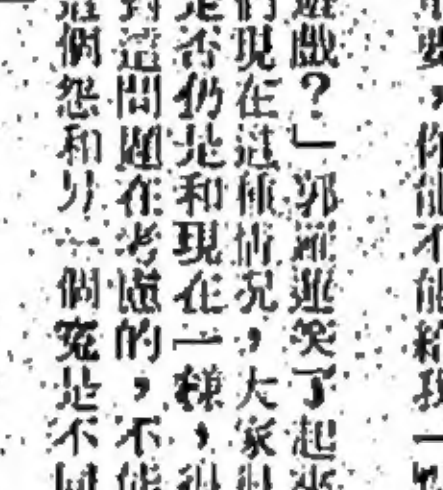 要，你能不能給我一
遊戲？」郭雅運笑了起來
們現在這種情況，大家
是否仍是和現在一樣，很
對這問題在考慮的，不能
這個怨和另一個冤是不同